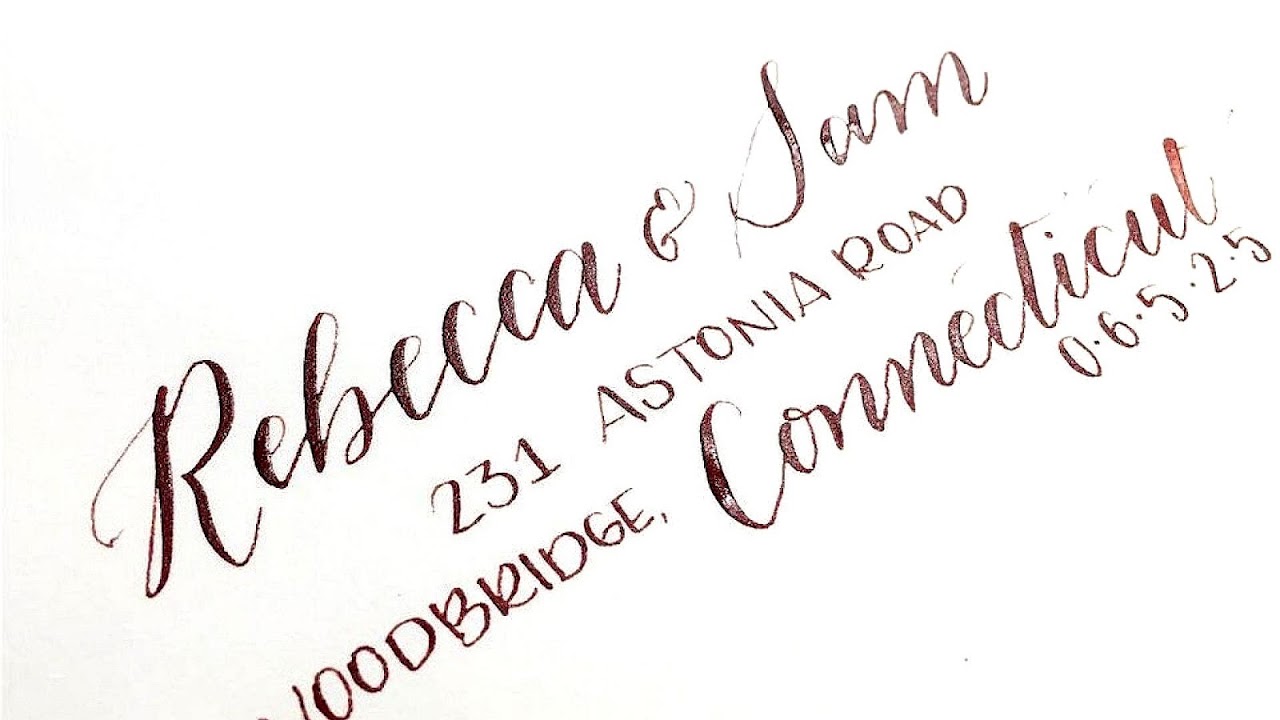 Rebecca & Sam
231 ASTONIA ROAD
WOODBRIDGE, Connecticut
0.6.5.2.5